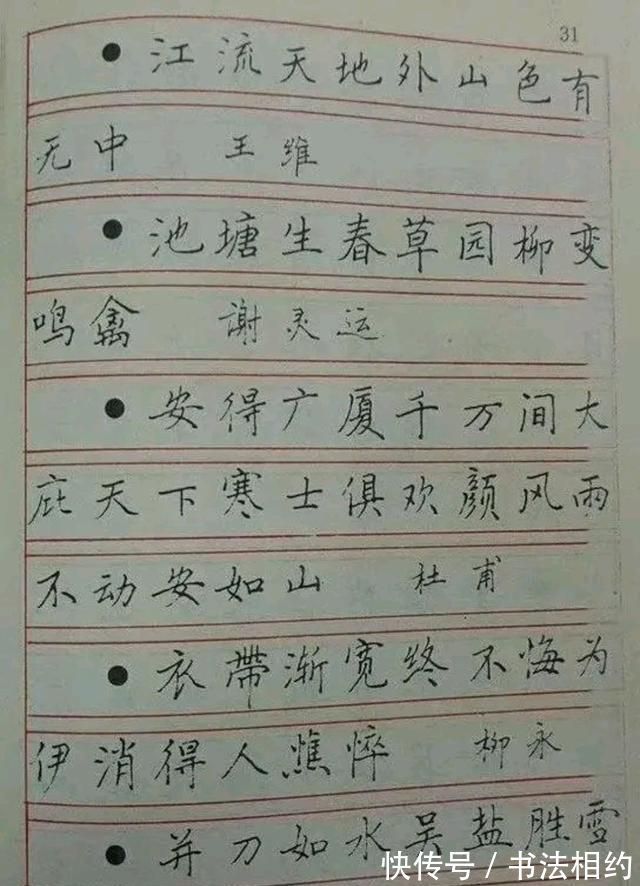 31
●江流天地外山色有
无中 王维
●池塘生春草园柳变
鸣禽 谢灵运
●安得广厦千万间大
庇天下寒士俱欢颜风雨
不动安如山 杜甫
●衣带渐宽终不悔为
伊消得人憔悴 柳永
●并刀如水吴盐胜雪
快传号/书法相约